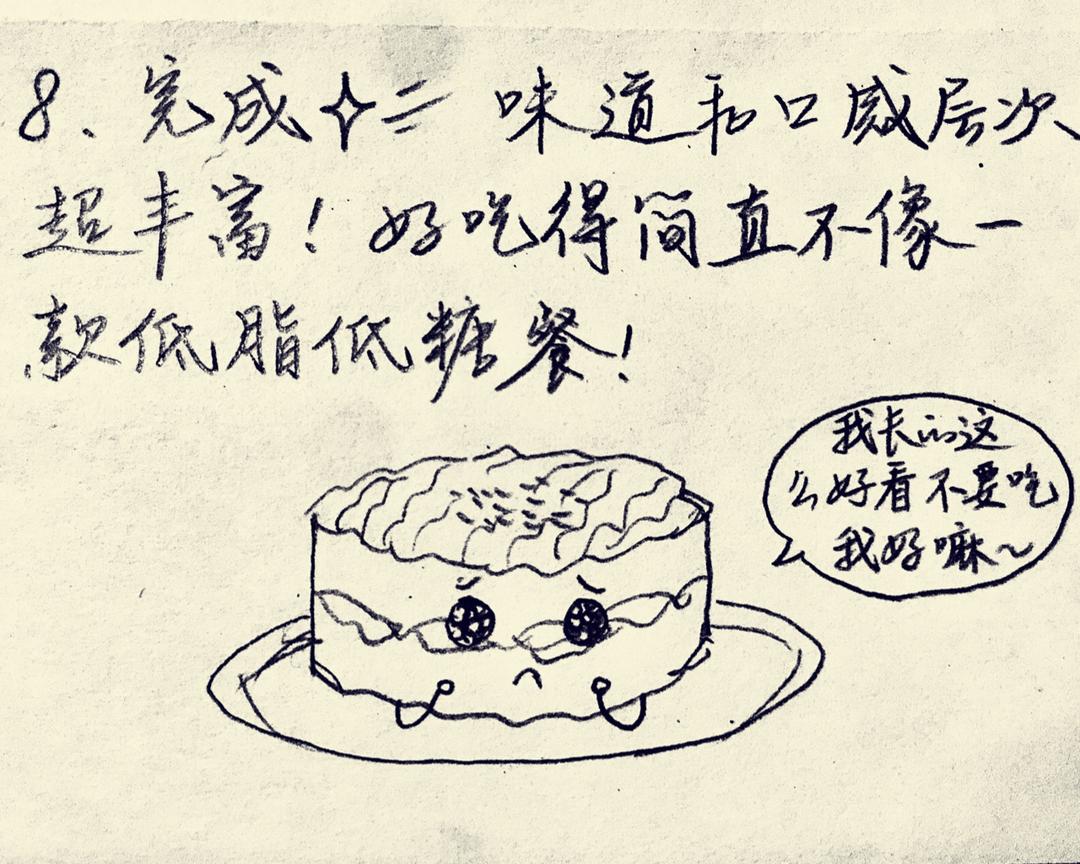 8、完成✧= 味道和口感层次
超丰富！好吃得简直不像一
款低脂低糖餐！
我长的这
么好看不要吃
我好嘛~